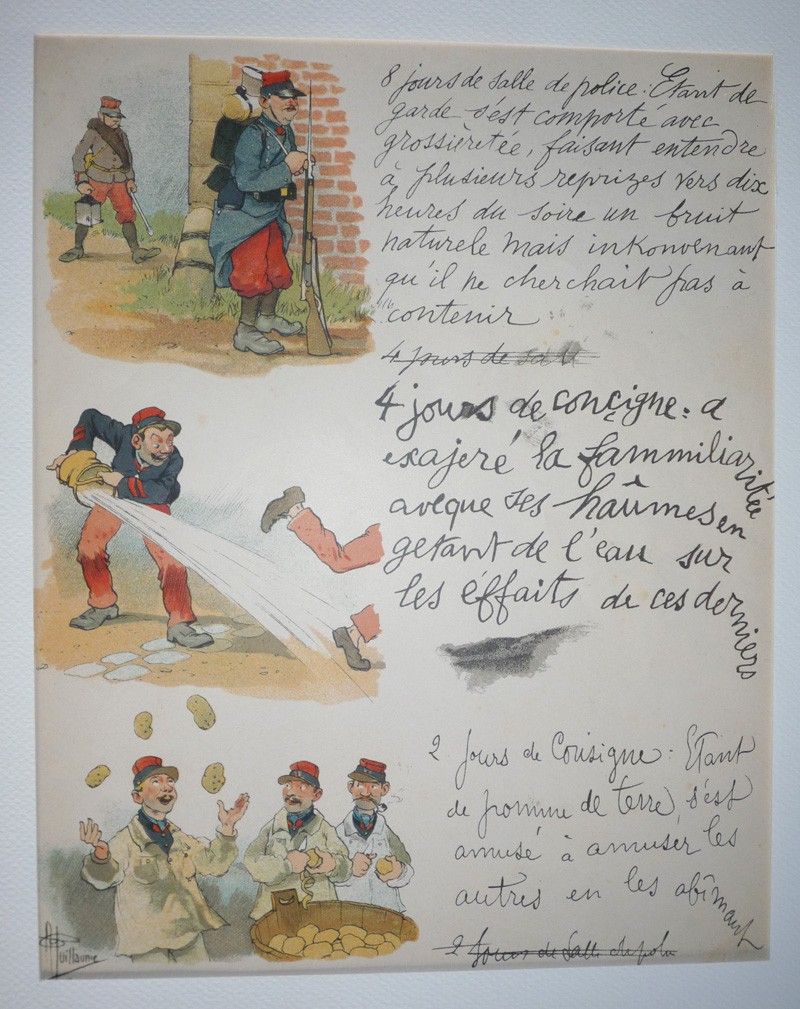 8 jours de salle de police: Etant de
garde s'est comporté avec
grossièritée, faisant entendre
à plusieurs reprizes vers dix
heures du soire un bruit
naturele mais inkonvenant
qu'il ne cherchait pas à
contenir
4 jours de sall
4 jours de conçigne: a
exajeré la fammiliaritée
avecque ses haûmes en
getant de l'eau sur
les éffaits de ces derniers
2 jours de Consigne: Etant
de pomme de terre, s'est
amusé à amuser les
autres en les abîmant
2 jours de Salle de polic
Guillaume